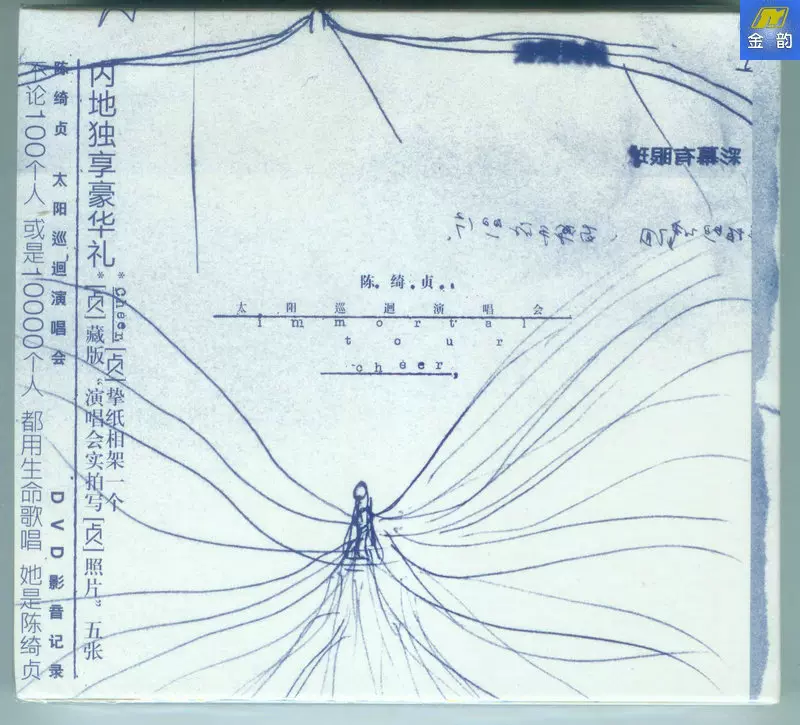 金韵
内地独享豪华礼
*cheer[贞]挚纸相架一个
*[贞]藏版“演唱会实拍写[贞]照片”五张
陈绮贞 太阳巡迴演唱会 DVD影音记录
不论100个人 或是10000个人 都用生命歌唱 她是陈绮贞
陈.绮.贞..
太阳巡迴演唱会
immortal
tour
cheer,